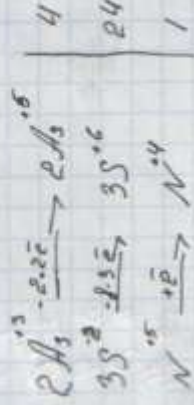 2As⁺³ -2·2ē → 2As⁺⁵ | 4
3S⁻² -8·3ē → 3S⁺⁶ | 24
N⁺⁵ +ē → N⁺⁴ | 1